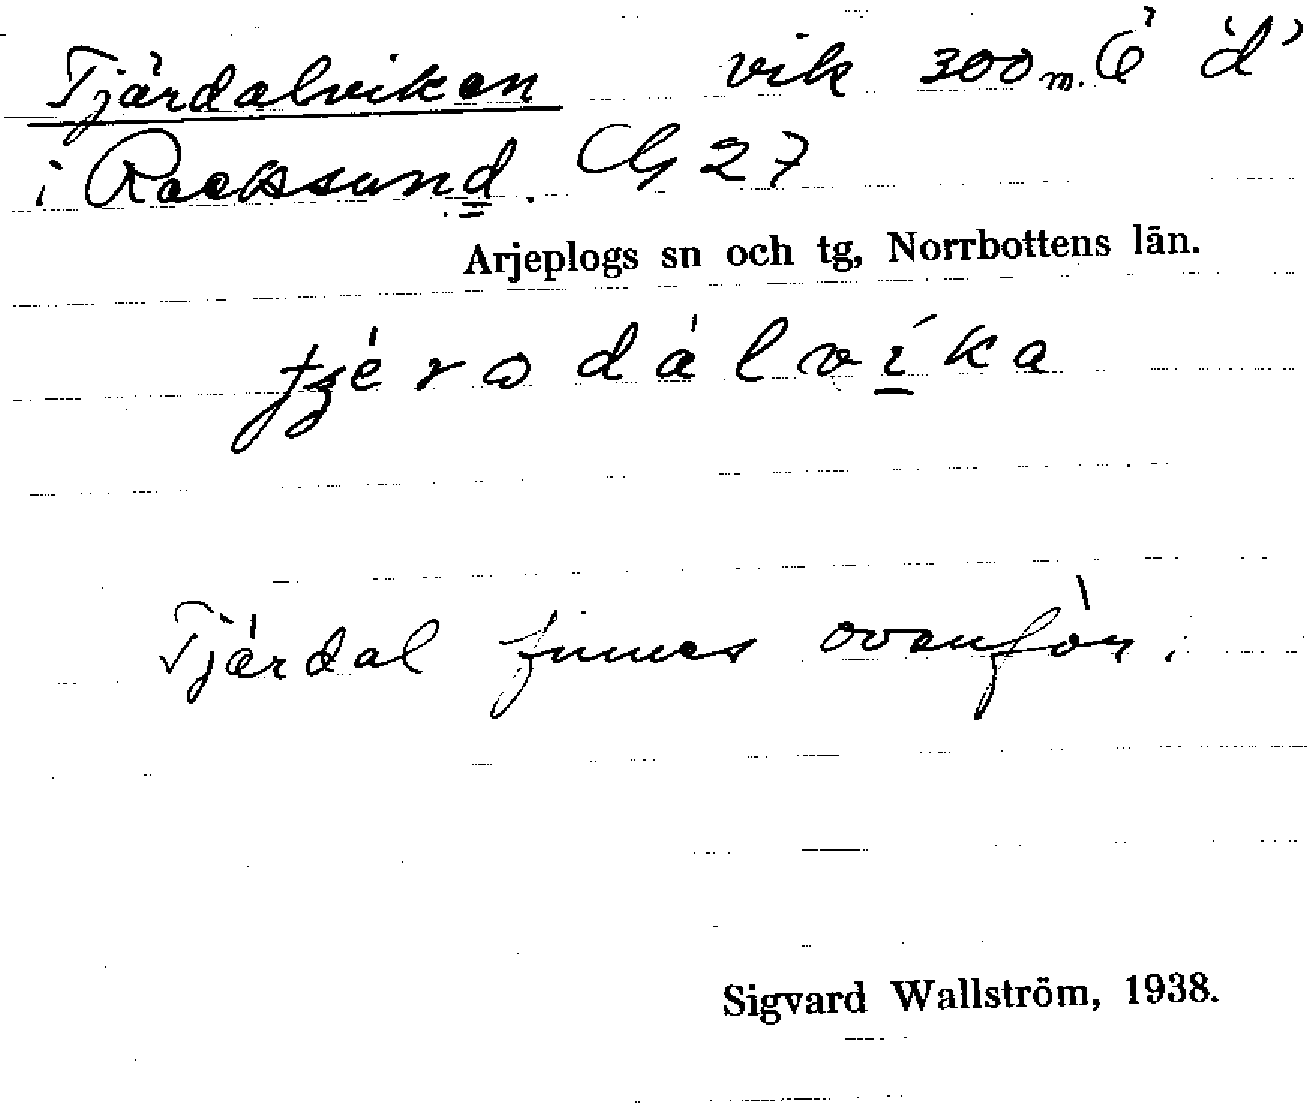 Tjärdalviken vik 300 m. Ö
i Racksund. G 27
Arjeplogs sn och tg, Norrbottens län.
Tjärdal finnes ovanför.
Sigvard Wallström, 1938.